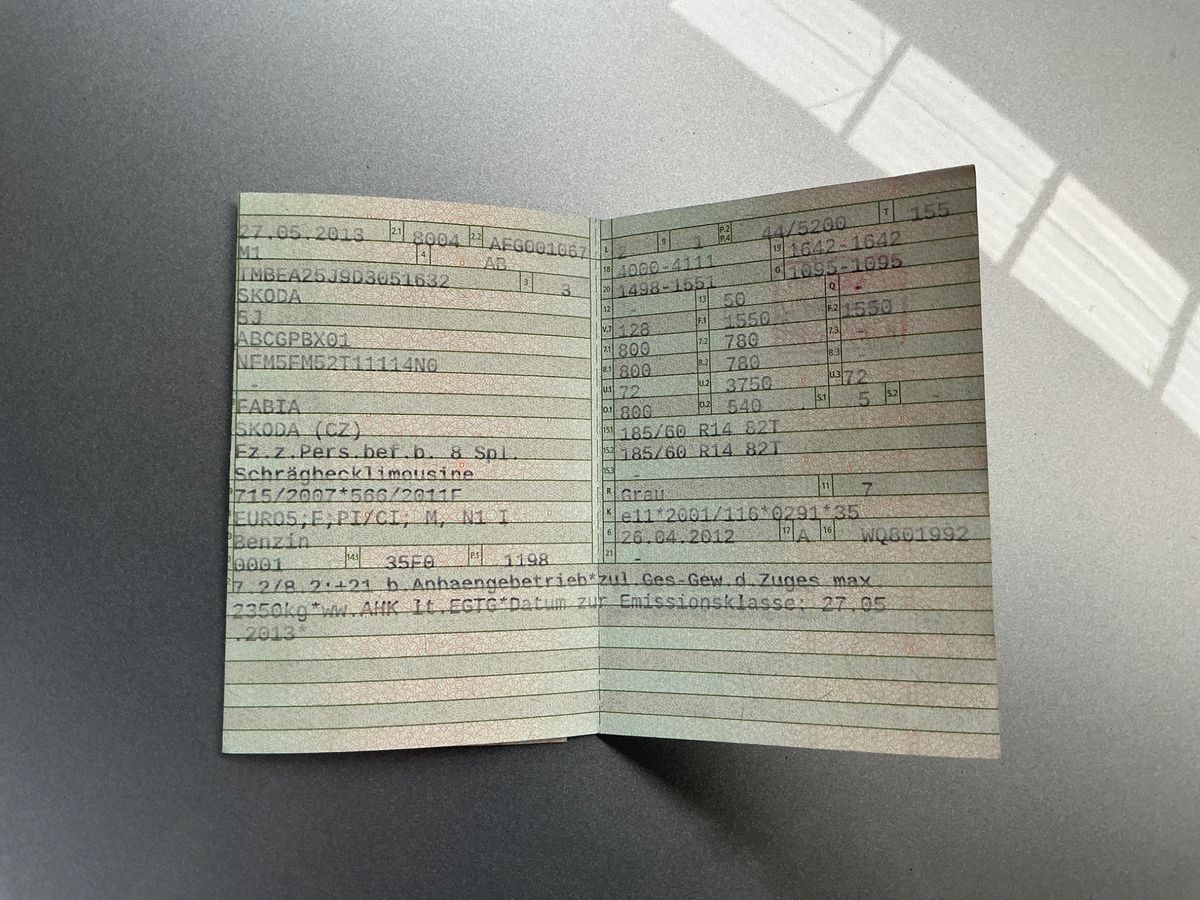 27.05.2013 2.1 8004 2.2 AFG001067
M1 4 AB
TMBEA25J9D3051632 3 3
SKODA
5J
ABCGPBX01
NFM5FM52T11114N0
-
FABIA
SKODA (CZ)
Fz.z.Pers.bef.b. 8 Spl.
Schräghecklimousine
715/2007*566/2011F
EURO5;F;PI/CI; M, N1 I
Benzin
0001 14.1 35F0 P.1 1198
L 2 9 1 P.2 P.4 44/5200 T 155
18 4000-4111 19 1642-1642
20 1498-1551 G 1095-1095
12 - 13 50 Q -
V.7 128 F.1 1550 F.2 1550
7.1 800 7.2 780 7.3 -
8.1 800 8.2 780 8.3
U.1 72 U.2 3750 U.3 72
O.1 800 O.2 540 S.1 5 S.2 -
15.1 185/60 R14 82T
15.2 185/60 R14 82T
15.3 -
R Grau 11 7
K e11*2001/116*0291*35
6 26.04.2012 17 A 16 WQ801992
21 -
7.2/8.2:+21 b.Anhaengebetrieb*zul.Ges-Gew.d.Zuges max
2350kg*ww.AHK lt.EGTG*Datum zur Emissionsklasse: 27.05
.2013*